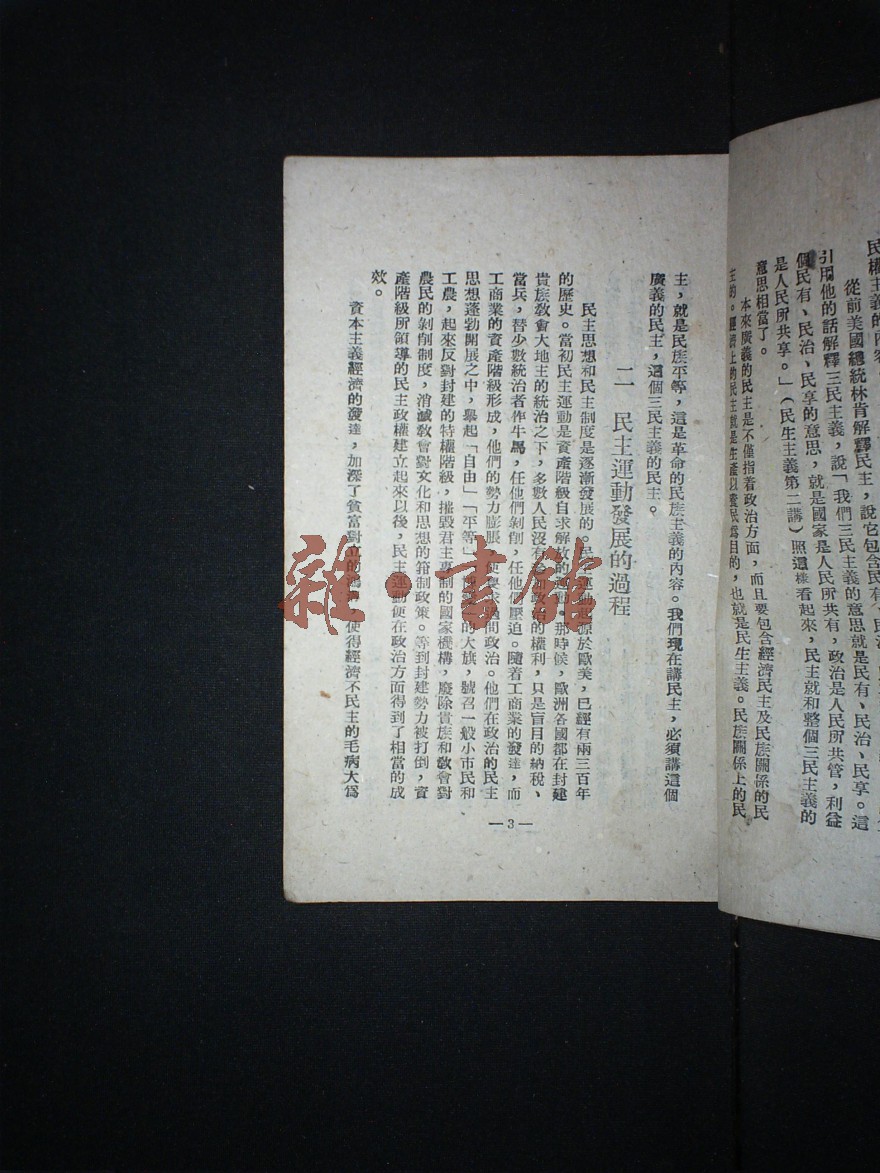 民權主義的內容
從前美國總統林肯解釋民主，說它包含民有、民治、
引用他的話解釋三民主義，說「我們三民主義的意思就是民有、民治、民享。這
個民有、民治、民享的意思，就是國家是人民所共有，政治是人民所共管，利益
是人民所共享。」（民生主義第二講）照這樣看起來，民主就和整個三民主義的
意思相當了。
本來廣義的民主是不僅指着政治方面，而且要包含經濟民主及民族關係的民
主的。經濟上的民主就是生產以養民爲目的，也就是民生主義。民族關係上的民
主，就是民族平等，這是革命的民族主義的內容。我們現在講民主，必須講這個
廣義的民主，這個三民主義的民主。
二　民主運動發展的過程
民主思想和民主制度是逐漸發展的，民主運動起源於歐美，已經有兩三百年
的歷史。當初民主運動是資產階級自求解放的運動。那時候，歐洲各國都在封建
貴族教會大地主的統治之下，多數人民沒有參加政治的權利，只是盲目的納稅、
當兵，替少數統治者作牛馬，任他們剝削，任他們壓迫。隨着工商業的發達，而
工商業的資產階級形成，他們的勢力膨脹，便要求過問政治。他們在政治的民主
思想蓬勃開展之中，舉起「自由」「平等」「博愛」的大旗，號召一般小市民和
工農，起來反對封建的特權階級，摧毀君主專制的國家機構，廢除貴族和教會對
農民的剝削制度，消滅教會對文化和思想的箝制政策。等到封建勢力被打倒，資
產階級所領導的民主政權建立起來以後，民主運動便在政治方面得到了相當的成
效。
資本主義經濟的發達，加深了貧富對立的，使得經濟不民主的毛病大爲
—3—
雜·書館